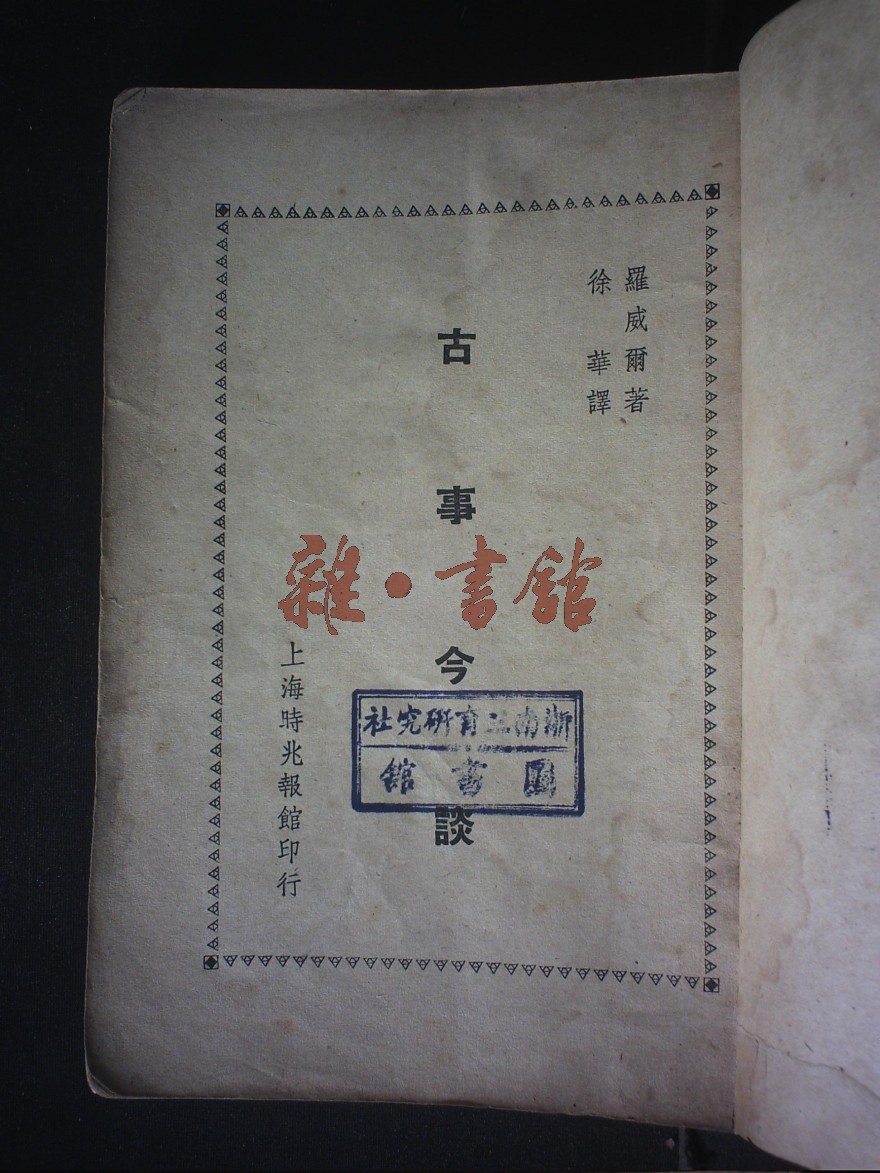 羅威爾著
徐華譯
古事今談
上海時兆報館印行
雜·書館
浙南三育研究社
圖書館